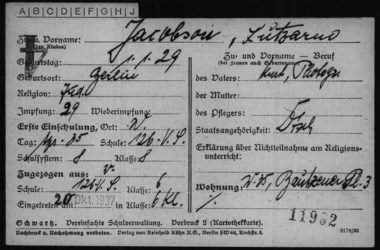 A B C D E F G H J
Zu- u. Vorname: Jacobson,
(des Kindes)
Geburtstag: 1.1.29
Geburtsort: Berlin
Religion: Jüd.
Impfung: 29 Wiederimpfung:
Erste Einschulung, Ort:
Tag: Apr. 35 Schule: 126. V.S.
Schulsystem: 8 Klasse: 8
Zugezogen aus: v.
Schule: 6
Eingetreten am 20. Okt. 1937 Kl.
Zu- und Vorname — Beruf
(bei Frauen auch Geburtsname)
des Vaters: Kurt,
der Mutter:
des Pflegers:
Staatsangehörigkeit: Dtsch
Erklärung über Nichtteilnahme am Religions-
unterricht:
Wohnung: Bautzener
11962
Schwartz, Vereinfachte Schulverwaltung. Vordruck 2 (Karthothekarte).
Nachdruck u. Nachahmung verboten. Verlag von Reinhold Kühn A.G., Berlin SW 68, Kochstr. 5